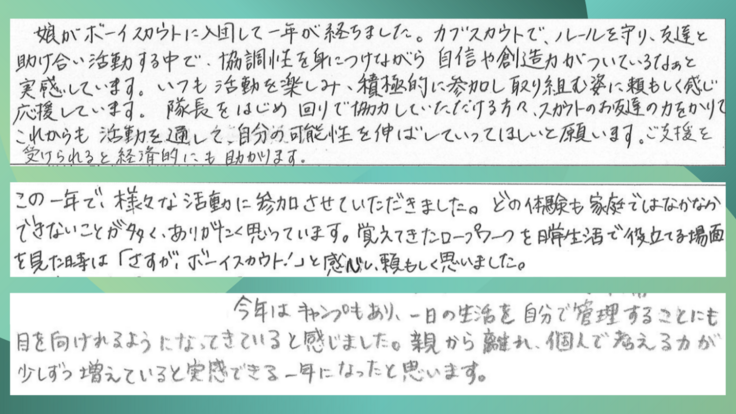 娘がボーイスカウトに入団して一年が経ちました。カブスカウトで、ルールを守り、友達と
助け合い活動する中で、協調性を身につけながら自信や創造力がついているなぁと
実感しています。いつも活動を楽しみ、積極的に参加し取り組む姿に頼もしく感じ
応援しています。隊長をはじめ回りで協力していただける方々、スカウトのお友達の力をかりて
これからも活動を通して、自分の可能性を伸ばしていってほしいと願います。ご支援を
受けられると経済的にも助かります。
この一年で、様々な活動に参加させていただきました。どの体験も家庭ではなかなか
できないことが多く、ありがたく思っています。覚えてきたロープワークを日常生活で役立てる場面
を見た時は「さすが、ボーイスカウト!」と感心し、頼もしく思いました。
今年はキャンプもあり、一日の生活を自分で管理することにも
目を向けれるようになってきていると感じました。親から離れ、個人で考える力が
少しずつ増えていると実感できる一年になったと思います。